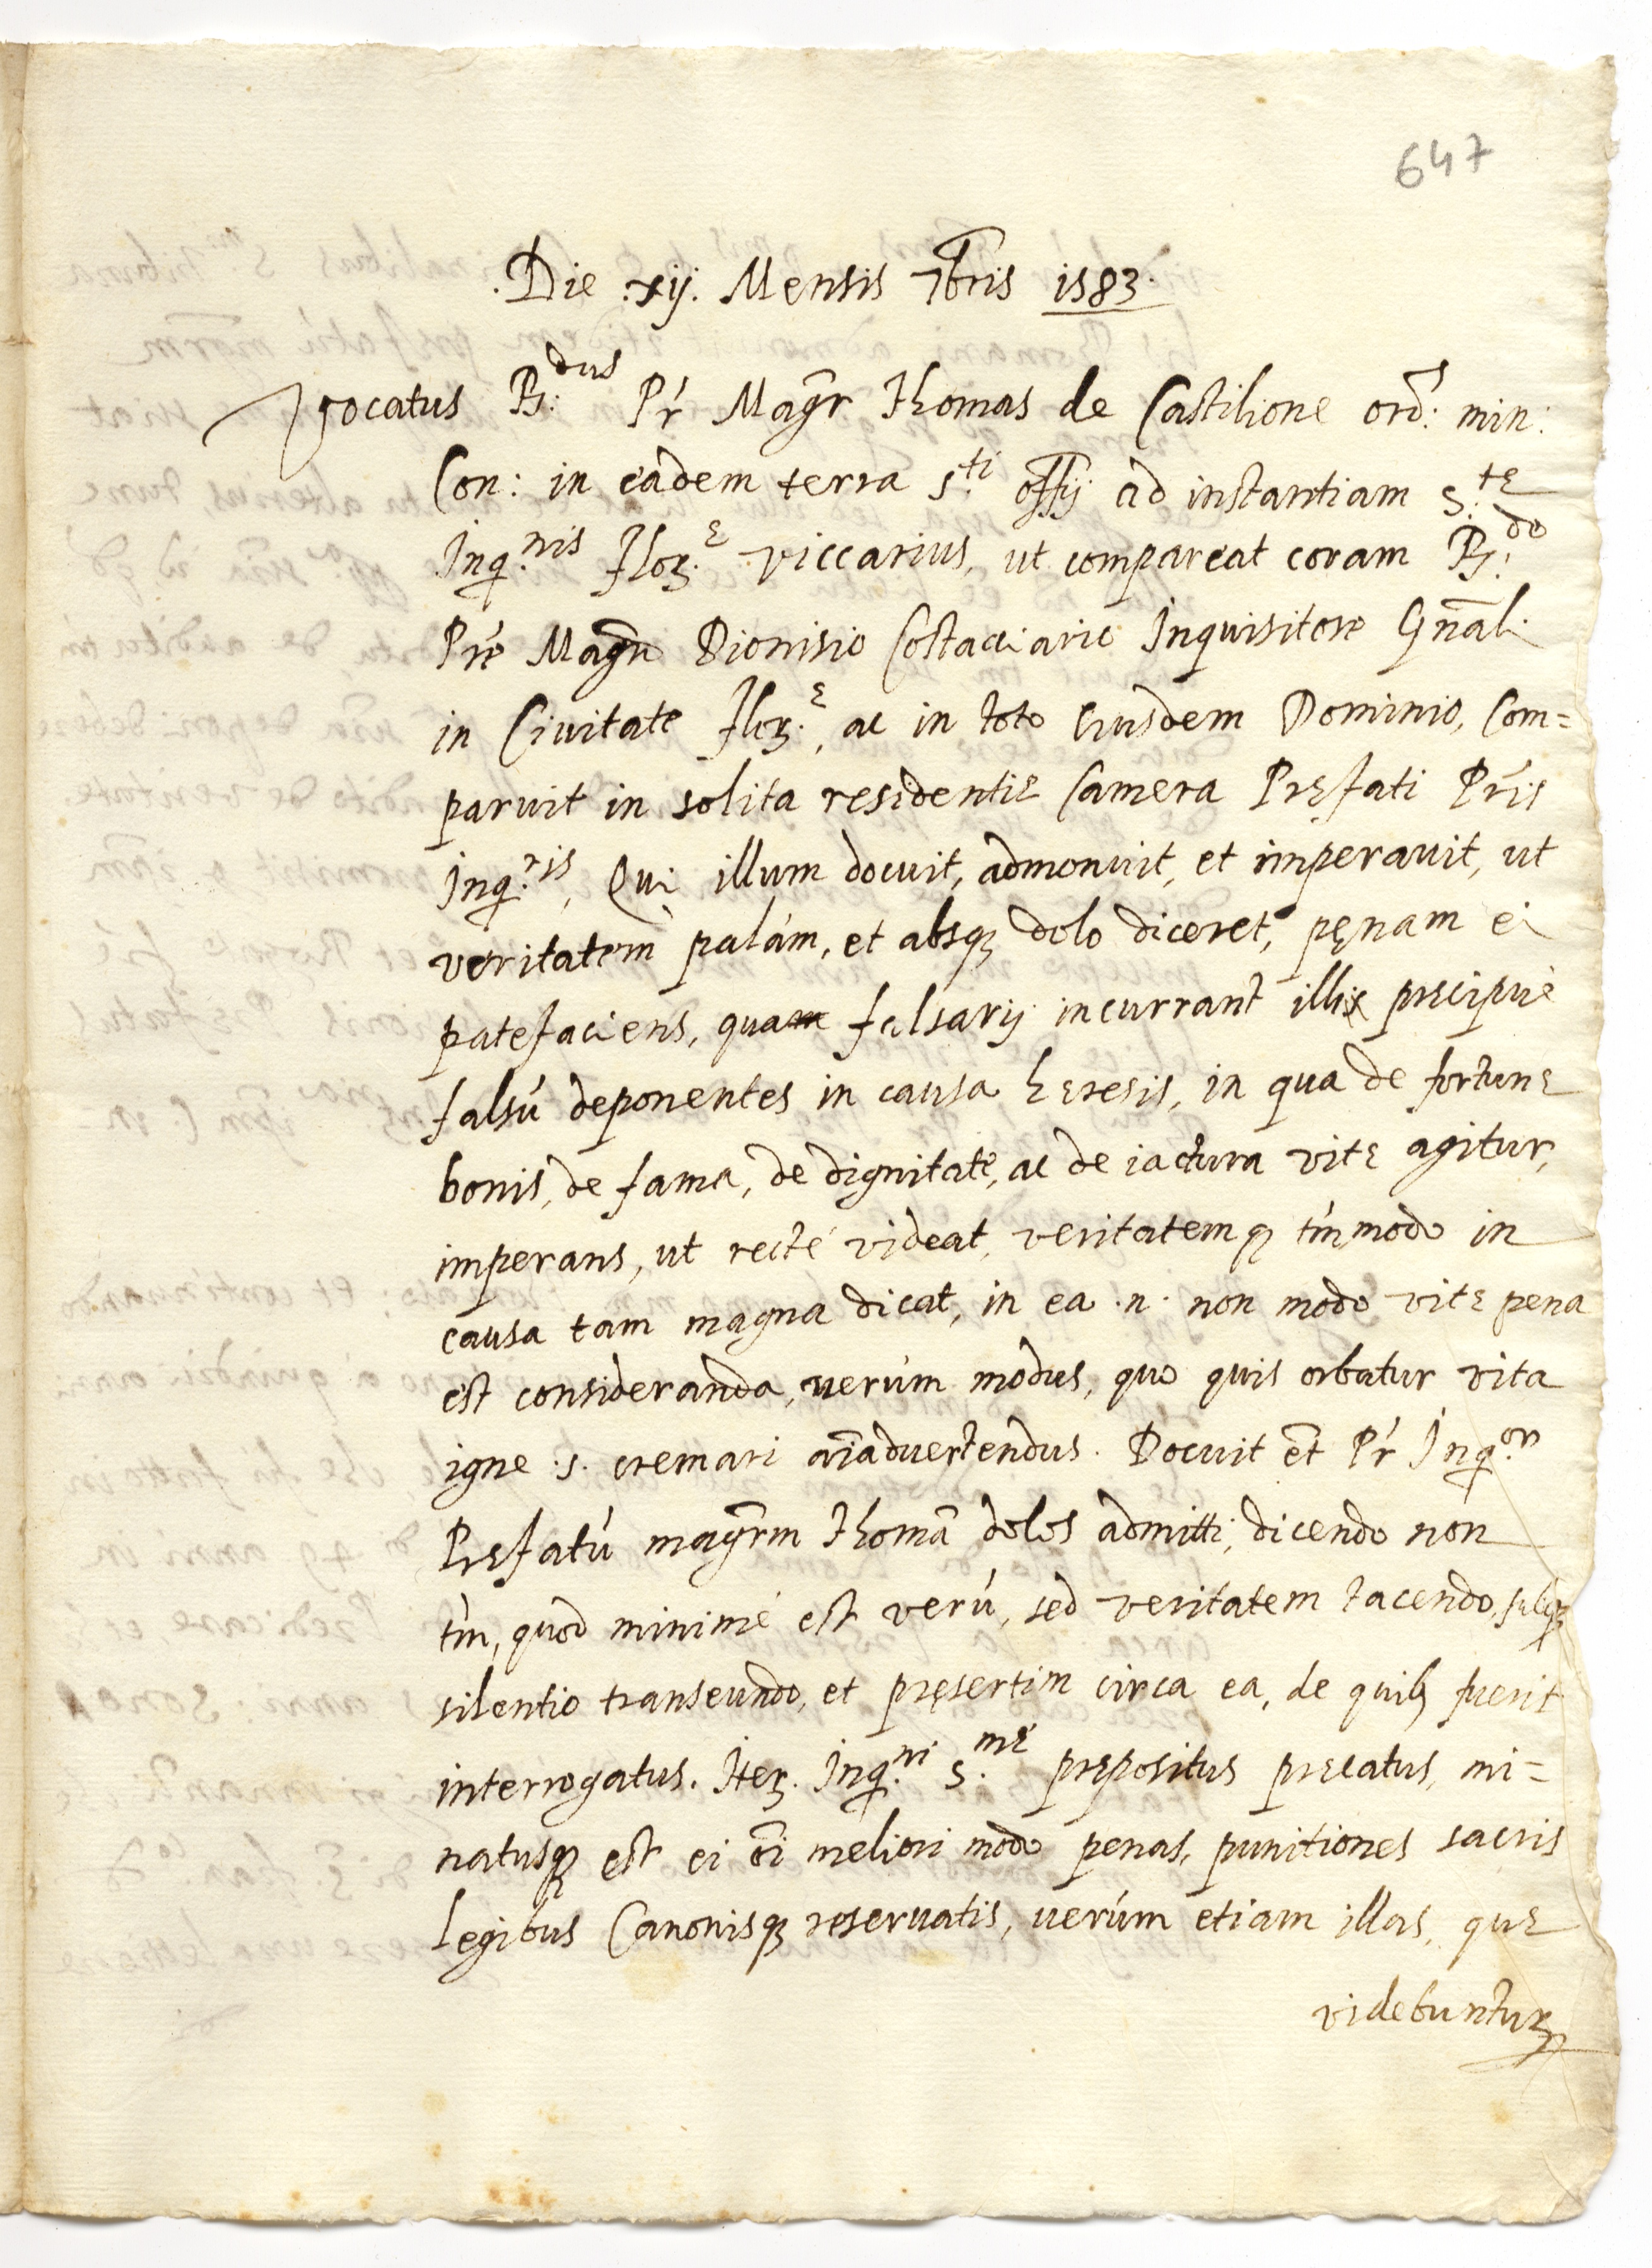 647
Die .xij. Mensis 7bris 1583.
Vocatus R.dus Pr Magr Thomas de Castilione ord: min:
Con: in eadem terra s.ti offij ad instantiam s.tę
Inq.nis Flor.ę viccarius, ut compareat coram R.do
Prē Magrō Dionisio Costacciario Inquisitore Gnāl.
in Civitate Flor.ę, ac in toto Eiusdem Dominio, Com=
paruit in solita residentię Camera Pręfati Pris
Inq.ris, Qui illum docuit, admonuit, et imperauit, ut
veritatem palám, et absq; dolo diceret, pęnam ei
patefaciens, quam falsarij incurrant illis pręcipuè
falsú deponentes in causa hęresis, in qua de fortunę
bonis, de fama, de dignitate, ac de iactura vitę agitur,
imperans, ut recté videat, veritatemq; tm̄modo in
causa tam magna dicat, in ea .n. non modo vitę pena
est consideranda, uerúm modus, quo quis orbatur vita
igne .s. cremari aīaduertendus. Docuit et̄ Pr Inq.or
Pręfatú magr̄m Thomā dolos admitti, dicendo non
tm̄, quod minimé est verú, sed veritatem tacendo, subq;
silentio transeundo, et pręsertim circa ea, de quib; fuerit
interrogatus. Iter. Inq.ni s.mę prępositus pręcatus, mi=
natusq; est ei oī meliori modo penas, punitiones sacris
Legibus Canonisq; reseruatis, uerúm etiam illas, quę
videbuntur